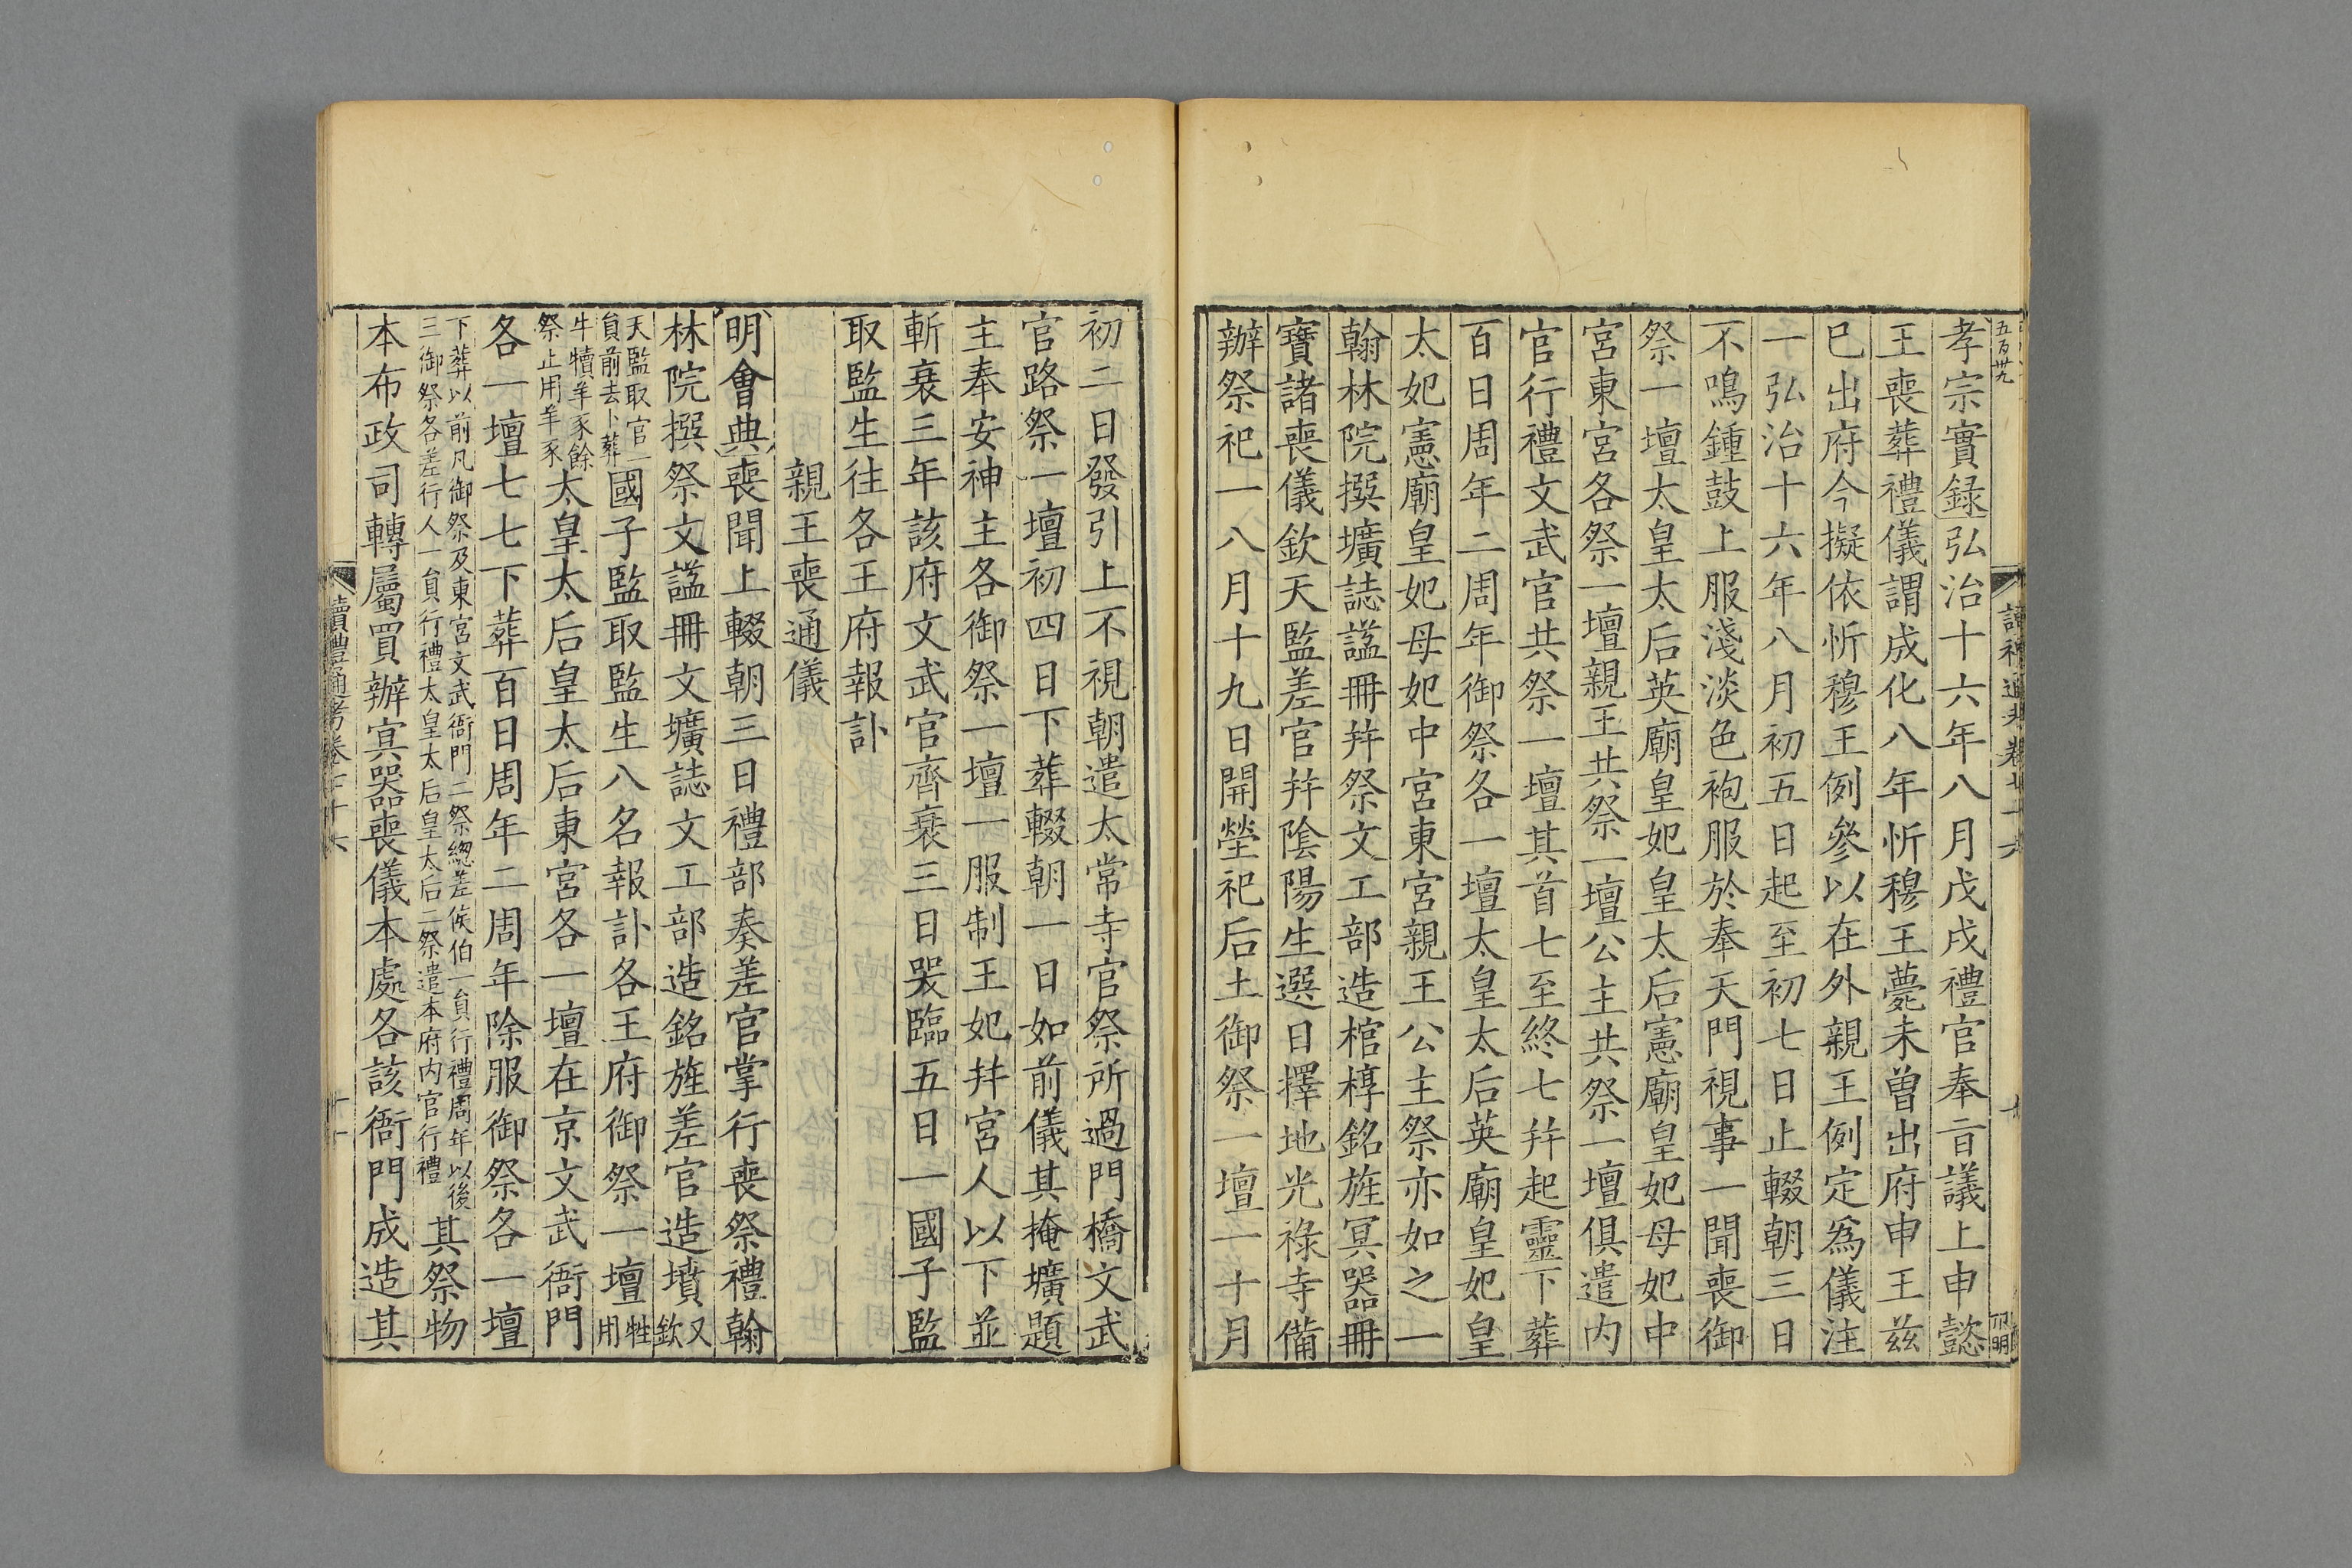 孝宗實録弘治十六年八月戊戌禮官奉㫖議上申懿
王喪葬禮儀謂成化八年忻穆王薨未曽出府申王兹
巳出府今擬依忻穆王例參以在外親王例定爲儀注
一弘治十六年八月初五日起至初七日止輟朝三日
不鳴鍾鼓上服淺淡色袍服於奉天門視事一聞喪御
祭一壇太皇太后英廟皇妃皇太后憲廟皇妃母妃中
宮東宮各祭一壇親王共祭一壇公主共祭一壇俱遣内
官行禮文武官共祭一壇其首七至終七幷起靈下葬
百日周年二周年御祭各一壇太皇太后英廟皇妃皇
太妃憲廟皇妃母妃中宮東宮親王公主祭亦如之一
翰林院撰壙誌謚冊幷祭文工部造棺椁銘旌冥器冊
寶諸喪儀欽天監差官幷陰陽生選日擇地光祿寺備
辦祭祀一八月十九日開塋祀后土御祭一壇一十月
初二日發引上不視朝遣太常寺官祭所過門橋文武
官路祭一壇初四日下葬輟朝一日如前儀其掩壙題
主奉安神主各御祭一壇一服制王妃幷宮人以下並
斬衰三年該府文武官齊衰三日哭臨五日一國子監
取監生往各王府報訃
親王喪通儀
明會典喪聞上輟朝三日禮部奏差官掌行喪祭禮翰
林院撰祭文謚冊文壙誌文工部造銘旌差官造墳又欽
天監取官一員前去卜葬國子監取監生八名報訃各王府御祭一壇牲用
牛犢羊豕餘祭止用羊豕太皇太后皇太后東宮各一壇在京文武衙門
各一壇七七下葬百日周年二周年除服御祭各一壇
下葬以前凡御祭及東宮文武衙門二祭總差侯伯一員行禮周年以後
三御祭各差行人一員行禮太皇太后皇太后二祭遣本府内官行禮其祭物
本布政司轉屬買辦冥器喪儀本處各該衙門成造其
讀禮通考卷七十六
十一